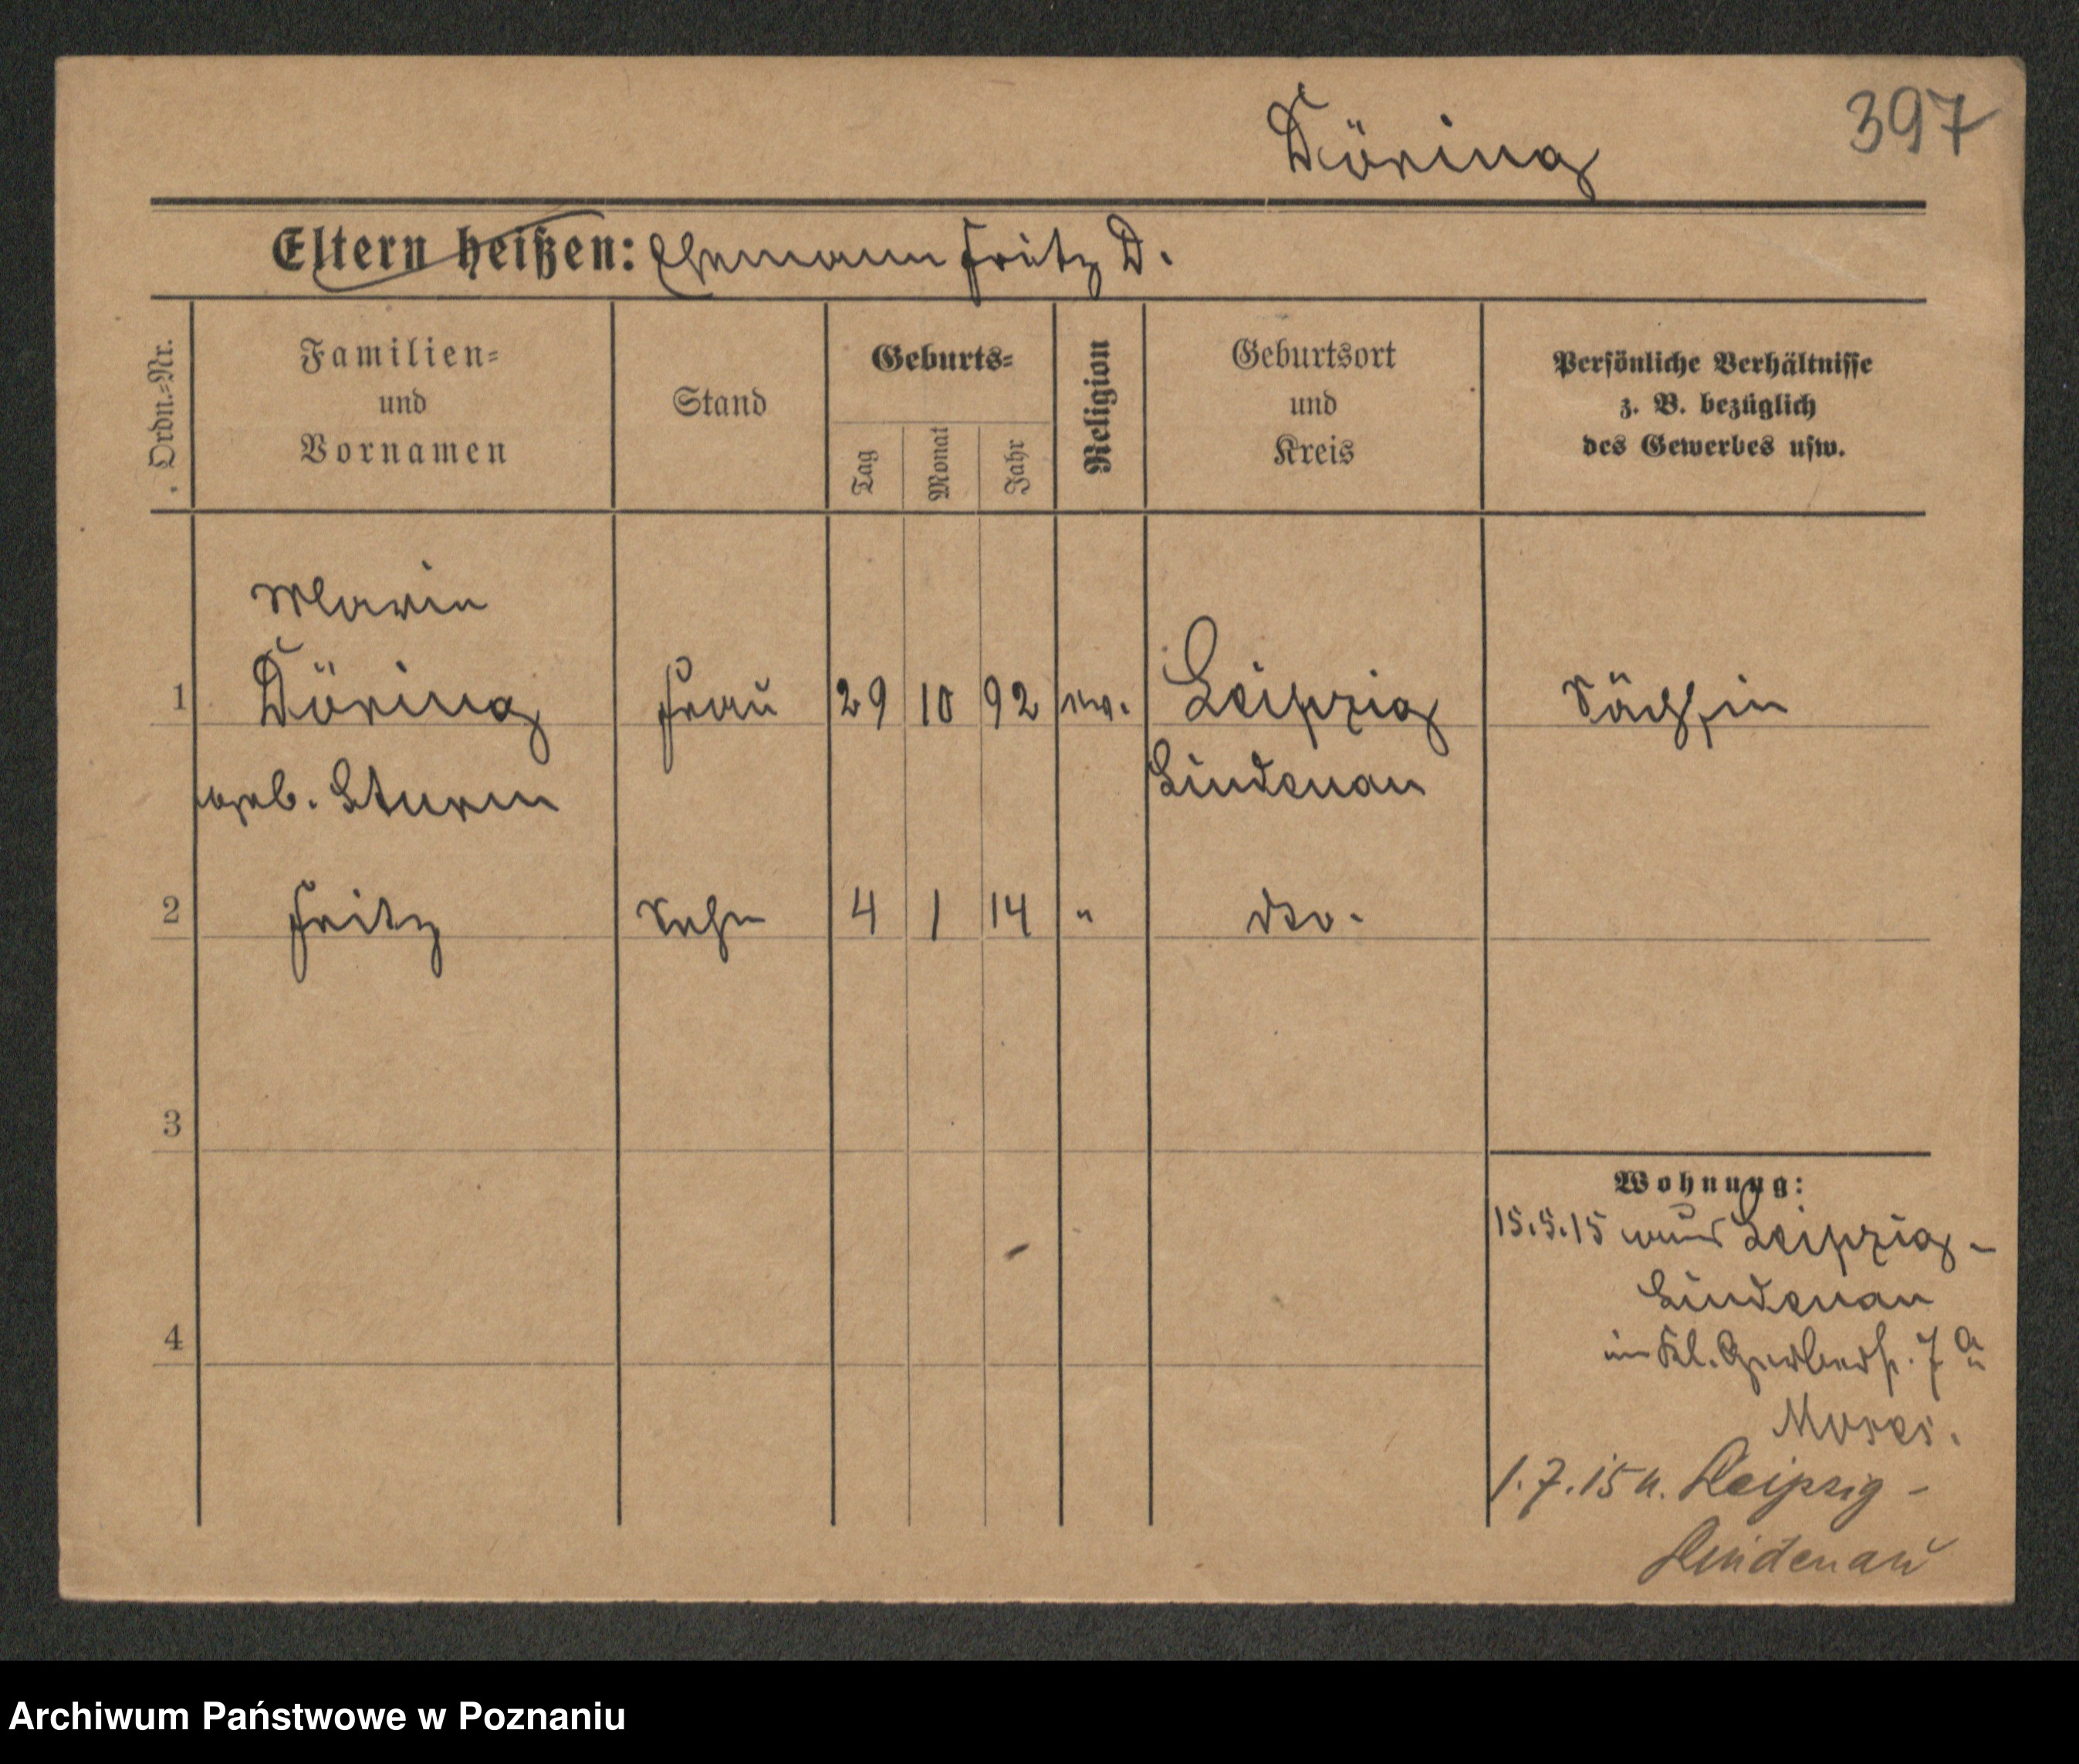 397
Döring
Eltern heißen: Ehemann Fritz D.
Ordn.=Nr.
Familien=
und
Vornamen
Stand
Geburts=
Tag
Monat
Jahr
Religion
Geburtsort
und
Kreis
Persönliche Verhältnisse
z. B. bezüglich
des Gewerbes usw.
Marie
1 Döring Frau 29 10 92 ev. Leipzig Sächsin
geb. Sturm Lindenau
2 Fritz Sohn 4 1 14 " dto.
3
Wohnung:
15.5.15 Leipzig-
Lindenau
4
Kl. Gerberstr. 7a
Moses.
1.7.15 n. Leipzig-
Lindenau
Archiwum Państwowe w Poznaniu